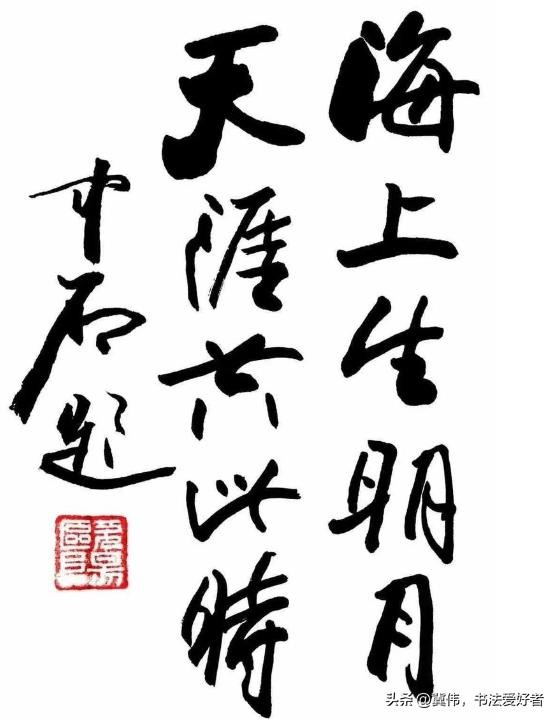 海上生明月
天涯共此时
中石题
头条@冀伟,书法爱好者